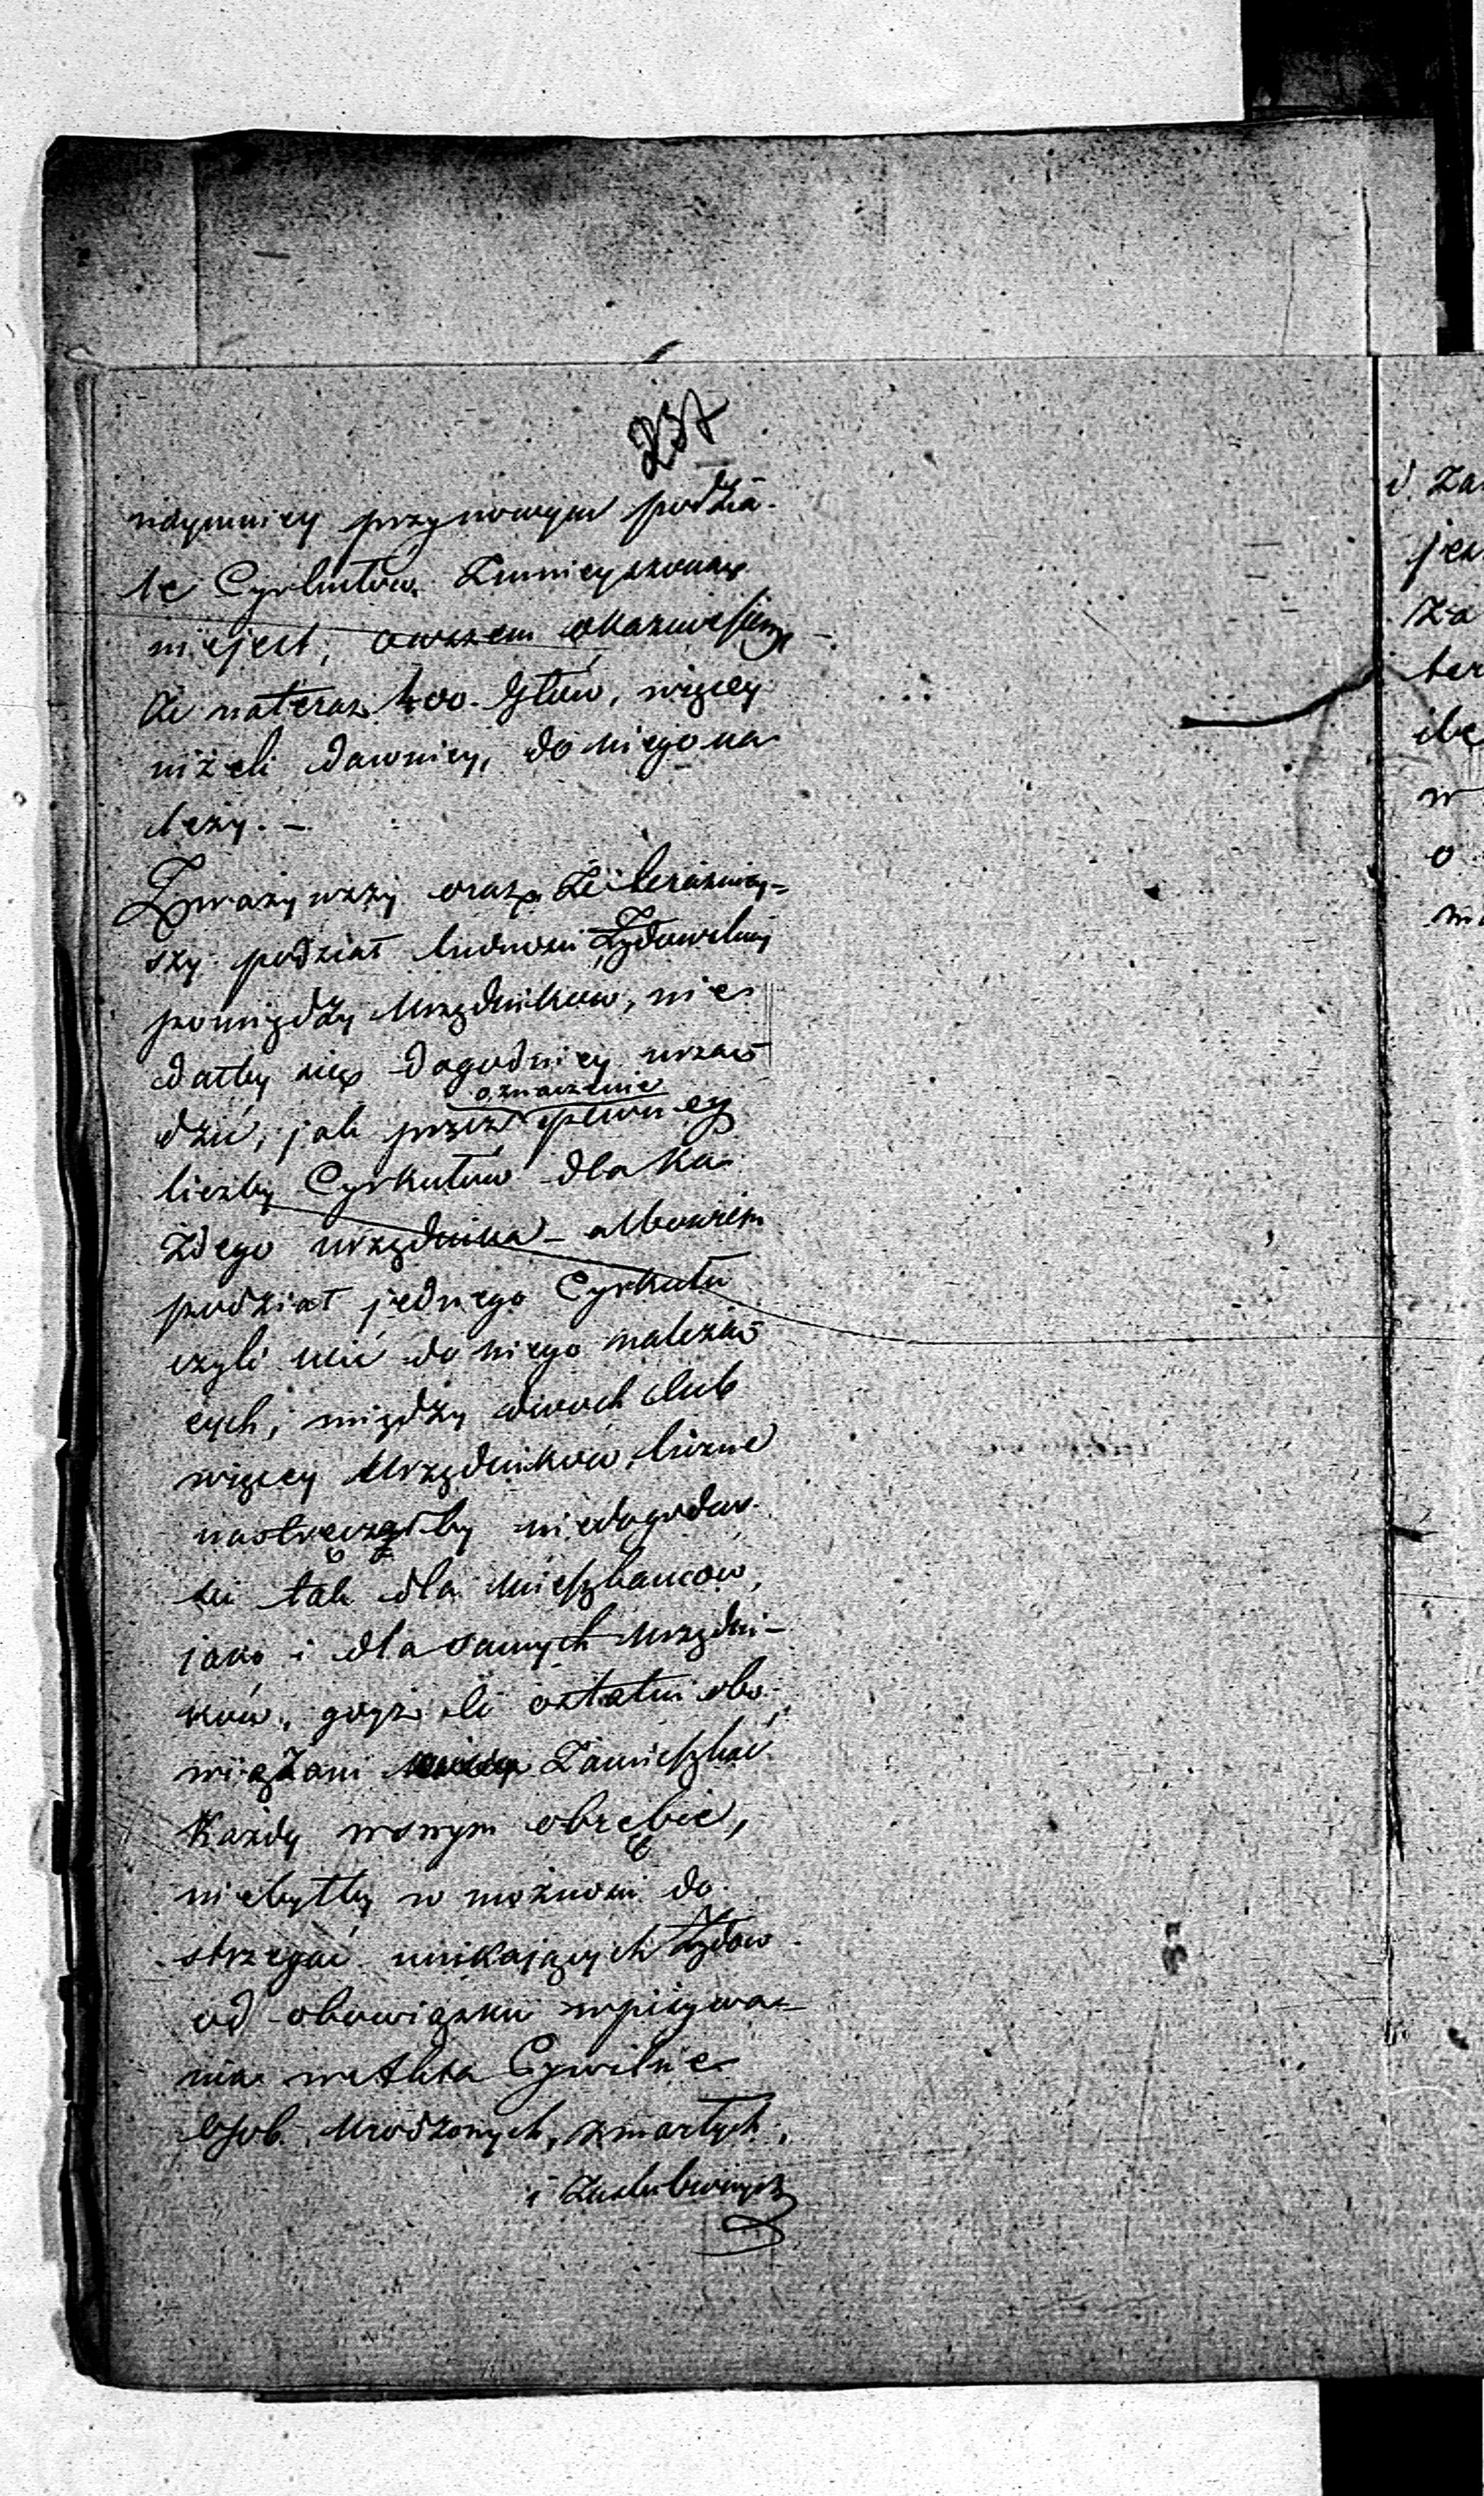 237
naymniey przy nowym podzia-
le Cyrkułów Zmnieyszoną
niejest, owszem okazuie się
że na teraz 400. głów, więcey
niżeli dawniey, do niego na
leży. –
Zważywszy oraz, że teraźniey-
szy podział ludności Żydowskiey
pomiędzy Urzędników, nie
dałby się dogodniey urzą
dzić, jak przez oznaczenie pewney
liczby Cyrkułów dla ka
żdego urzędnika – albowiem
podział jednego Cyrkułu
czyli ulic do niego należą
cych, między dwóch lub
więcey Urzędników, liczne
nastręczałby niedogodno
ści tak dla Mieszkańców,
jako i dla samych Urzędni-
ków, gdyż ci ostatni obo-
wiązani Zamieszkać
Każdy w swym obrębie,
niebyłby w możności do
strzegać unikających Żydów
od obowiązku wpisywa-
nia w Akta Cywilne
Osób Urodzonych, zmarłych,
i Zaślubionych